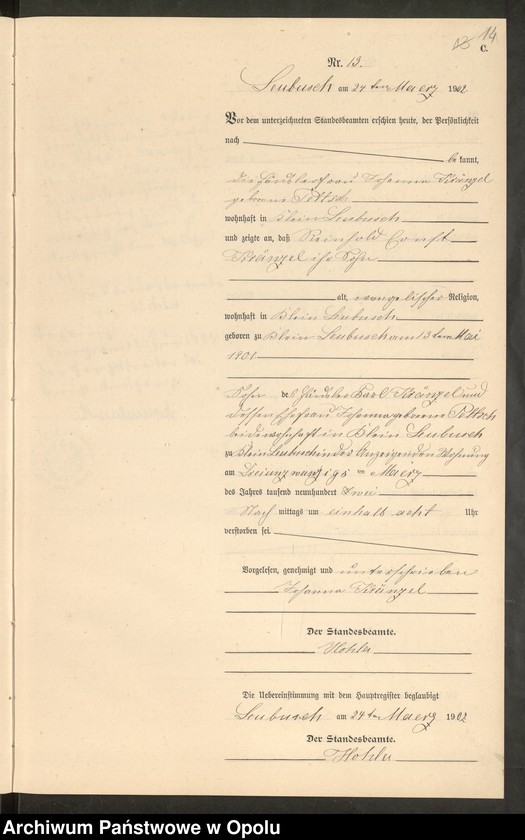 14
C.
Nr. 13.
Leubusch am 24 ten Maerz 1902
Vor dem unterzeichneten Standesbeamten erschien heute, der Persönlichkeit
nach
be kannt,
die Händlerfrau Johanna Kränzel
geborene Poltsch
wohnhaft in Klein Leubusch
und zeigte an, daß Reinhold Ernst
Kränzel ihr Sohn
alt, evangelischer Religion,
wohnhaft in Klein Leubusch
geboren zu Klein Leubusch am 13 ten Mai
1901
Sohn des Händler Karl Kränzel und
dessen Ehefrau Johanna geborene Poltsch
beide wohnhaft in Klein Leubusch
zu Klein Leubusch in des Anzeigenden Wohnung
am Dreiundzwanzigs ten Maerz
des Jahres tausend neunhundert zwei
Nach mittags um einhalb acht Uhr
verstorben sei.
Vorgelesen, genehmigt und unterschrieben
Johanna Kränzel
Der Standesbeamte.
Die Uebereinstimmung mit dem Hauptregister beglaubigt
Leubusch am 24 ten Maerz 1902
Der Standesbeamte.
Archiwum Państwowe w Opolu